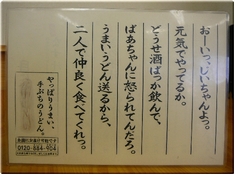 おーいっ、じいちゃんよっ。
元気でやってるか。
どうせ酒ばっか飲んで、
ばあちゃんに怒られてんだろ。
うまいうどん送るから、
二人で仲良く食べてくれっ。
やっぱりうまい、
手ぶちのうどん。
0120-884-906